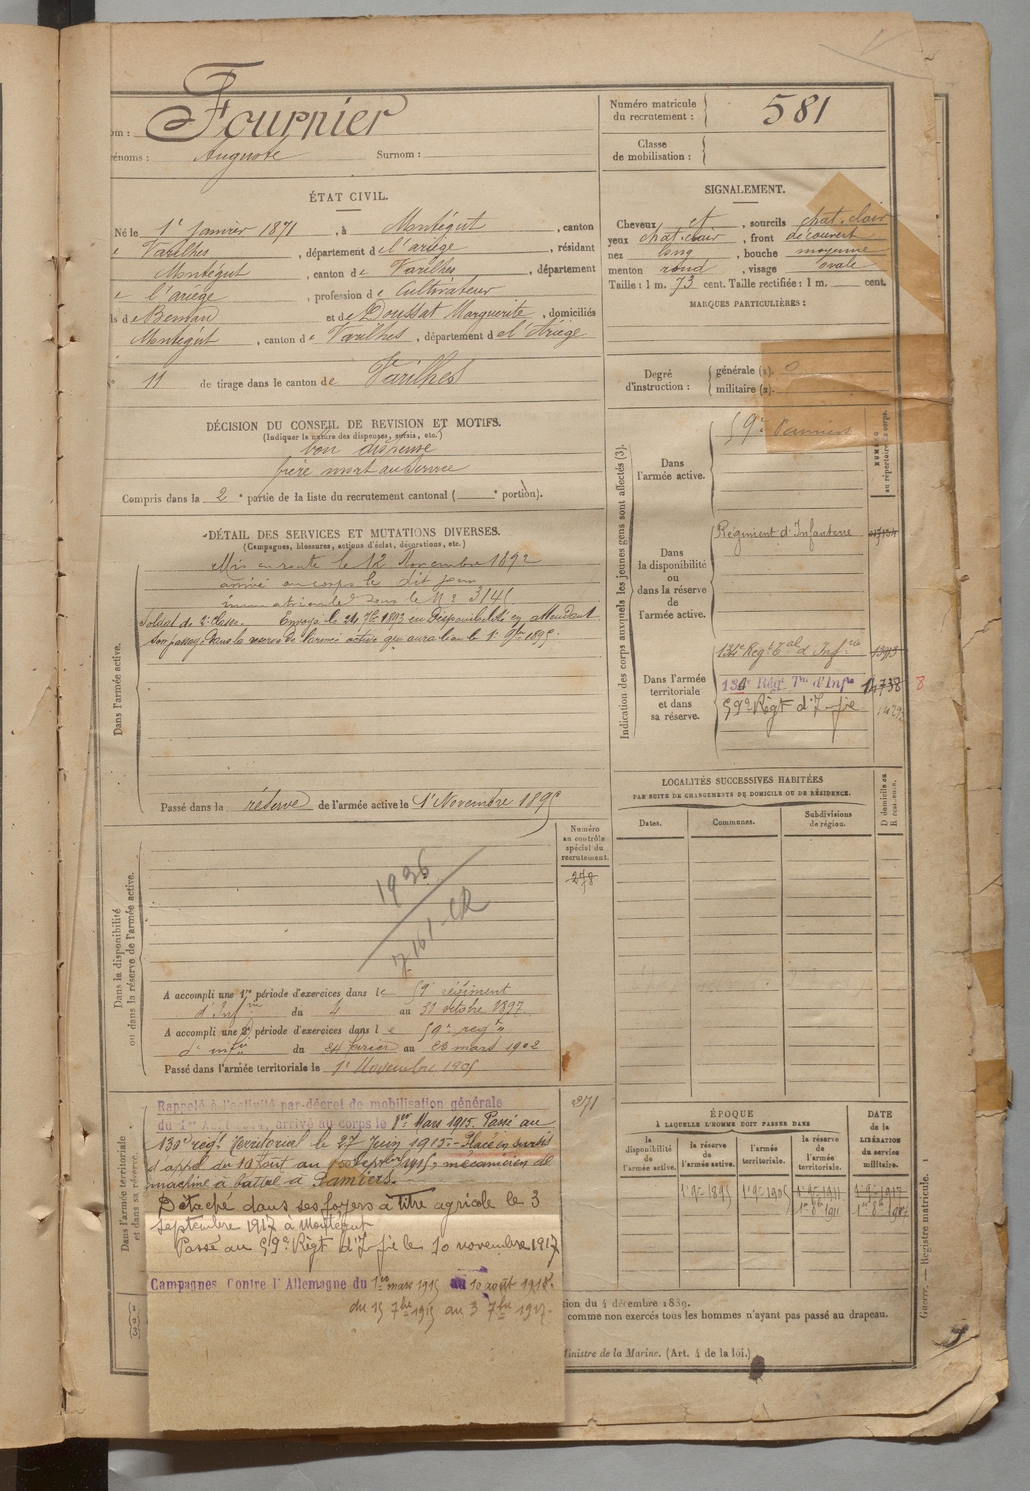 om : Fournier
énoms : Auguste Surnom :
Numéro matricule
du recrutement : 581
Classe
de mobilisation :
ÉTAT CIVIL.
Né le 1er janvier 1871, à Montégut, canton
e Varilhes, département de l'ariège, résidant
Montégut, canton de Varilhes, département
e l'ariège, profession de Cultivateur
ls de et de Doussat Marguerite, domiciliés
Montégut, canton de Varilhes, département de l'Ariège
N° 11 de tirage dans le canton de Varilhes
SIGNALEMENT.
Cheveux et, sourcils chat. clair
yeux chat. clair, front découvert
nez long, bouche moyenne
menton rond, visage ovale
Taille : 1 m. 73 cent. Taille rectifiée : 1 m. cent.
MARQUES PARTICULIÈRES :
Degré
d'instruction :
générale (1). 0
militaire (2).
DÉCISION DU CONSEIL DE REVISION ET MOTIFS.
(Indiquer la nature des dispenses, sursis, etc.)
bon dispensé
frère mort au service
Compris dans la 2e partie de la liste du recrutement cantonal ( e portion).
DÉTAIL DES SERVICES ET MUTATIONS DIVERSES.
(Campagnes, blessures, actions d'éclat, décorations, etc.)
Dans l'armée active.
Mis en route le 12 Novembre 1892
arrivé au corps le dit jour
immatriculé sous le N° 3145
Soldat de 2e classe. Envoyé le 24 7bre 1893 en Disponibilité en attendant
son passage dans la réserve de l'armée active qui aura lieu le 1er 9bre 1895.
Passé dans la réserve de l'armée active le 1er Novembre 1895
Indication des corps auxquels les jeunes gens sont affectés (3).
NUMÉRO
au répertoire du corps.
Dans
l'armée active.
59e Pamiers
Dans
la disponibilité
ou
dans la réserve de
l'armée active.
Régiment d'Infanterie
Dans l'armée
territoriale
et dans
sa réserve.
134e Régt Tal d'Infrie
130e Régt Tal d'Infie 14738 8
59e Régt d'Ifie
LOCALITÉS SUCCESSIVES HABITÉES
PAR SUITE DE CHANGEMENTS DE DOMICILE OU DE RÉSIDENCE.
Dates. Communes. Subdivisions
de région. D domicile ou
R résidence.
Numéro
au contrôle
spécial du
recrutement.
278
Dans la disponibilité
ou dans la réserve de l'armée active.
1936
7161 CR
A accompli une 1re période d'exercices dans le 59e régiment
d'Infrie du 4 au 31 octobre 1897
A accompli une 2e période d'exercices dans le 59e regt
d'infie du 24 février au 23 mars 1902
Passé dans l'armée territoriale le 1er Novembre 1905
271
Dans l'armée territoriale
et dans sa réserve.
Rappelé à l'activité par décret de mobilisation générale
du 1er Août 1914, arrivé au corps le 1er Mars 1915. Passé au
130e régt territorial le 27 Juin 1915. Placé en sursis
d'appel du 10 août au septembre 1915, mécanicien de
machine à battre à Pamiers.
Détaché dans ses foyers à titre agricole le 3
septembre 1917 à Montégut
Passé au 59e Régt d'Ifie le 10 novembre 1917
Campagnes Contre l'Allemagne du 1er mars 1915 au 10 août 1915.
du 15 7bre 1915 au 3 7bre 1917.
ÉPOQUE
À LAQUELLE L'HOMME DOIT PASSER DANS
DATE
de la
LIBÉRATION
du service
militaire.
la
disponibilité
de
l'armée active.
la réserve
de
l'armée active.
l'armée
territoriale.
la réserve
de
l'armée
territoriale.
1er 9bre 1895 1er 9bre 1905 1er 9bre 1911 1er 9bre 1917
tion du 4 décembre 1889.
comme non exercés tous les hommes n'ayant pas passé au drapeau.
Ministre de la Marine. (Art. 4 de la loi.)
Guerre. — Registre matricule. 1